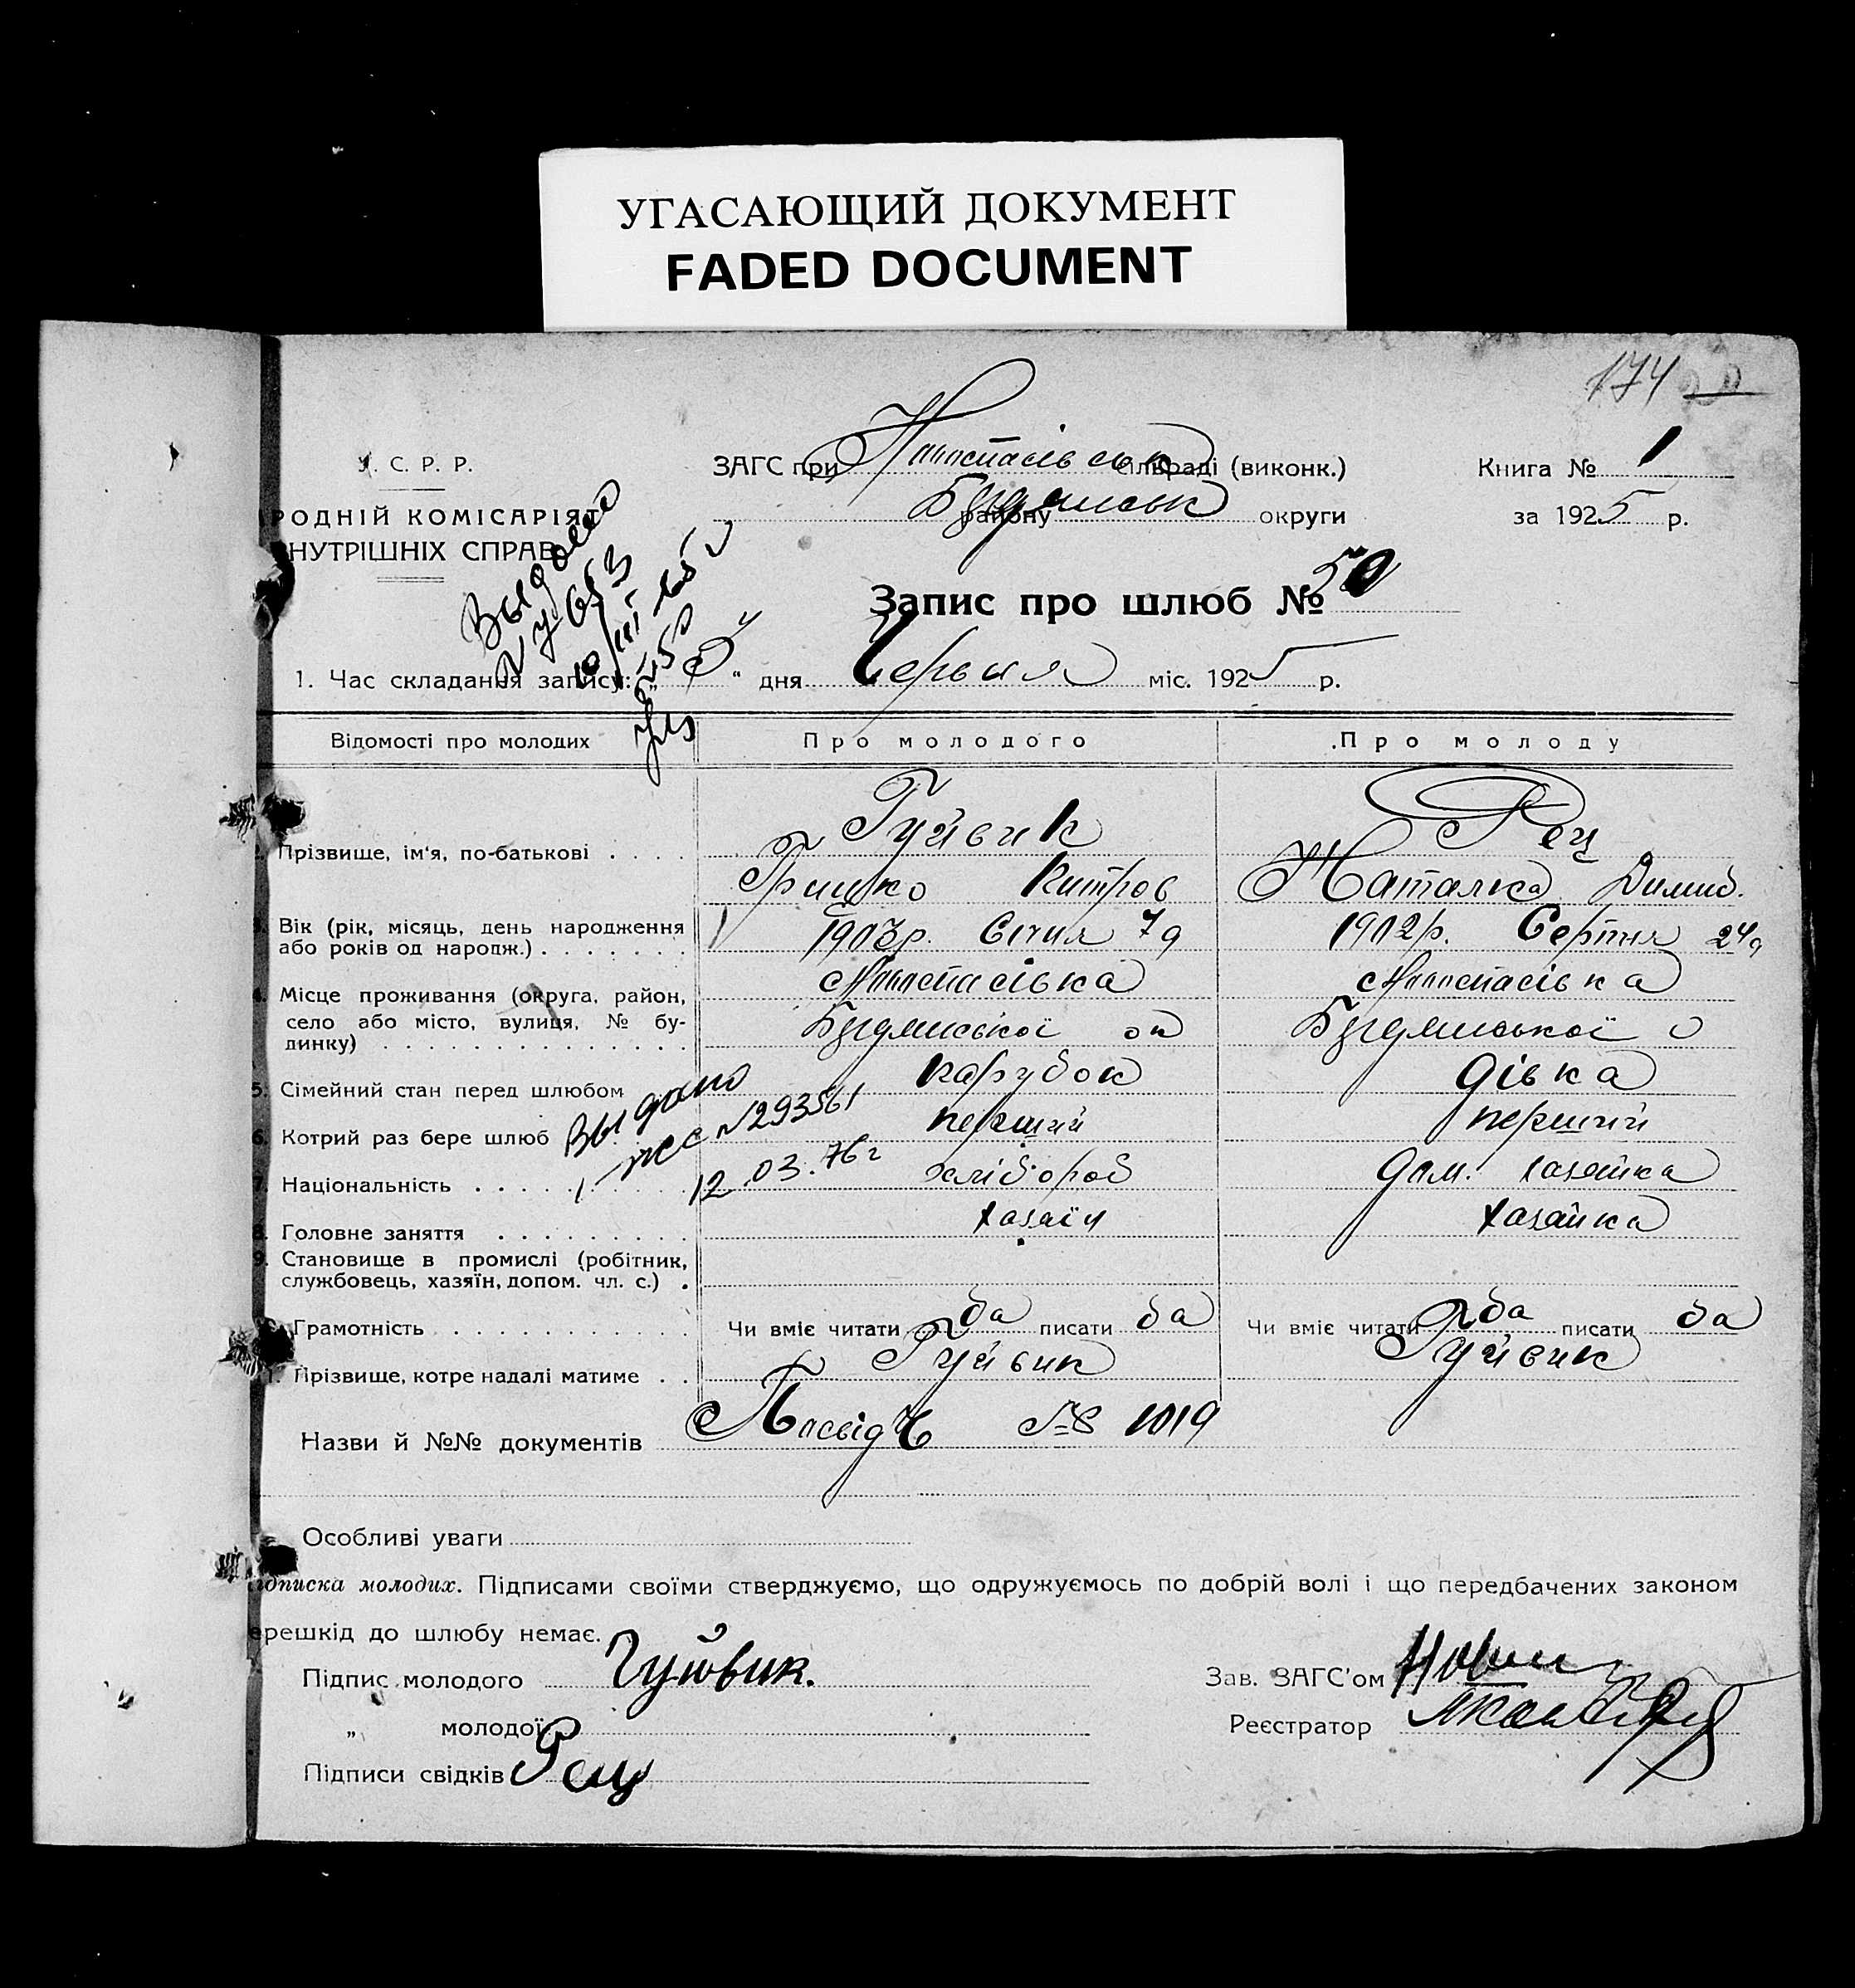 УГАСАЮЩИЙ ДОКУМЕНТ
FADED DOCUMENT
174
У. С. Р. Р.
РОДНІЙ КОМІСАРІЯТ
НУТРІШНІХ СПРАВ
ЗАГС при сільраді (виконк.)
району округи
Книга № 1
за 1925 р.
Запис про шлюб № 50
Выдано
1. Час складання запису: „ “ дня Червня міс. 1925 р.
Відомості про молодих
Про молодого
Про молоду
Прізвище, ім'я, по-батькові
Гуйвик
Грицко
Рец
Наталка
3. Вік (рік, місяць, день народження
або років од народж.)
Січня 7 д
1902 р. Серпня 24 д
4. Місце проживання (округа, район,
село або місто, вулиця, № бу-
динку)
5. Сімейний стан перед шлюбом
парубок
дівка
6. Котрий раз бере шлюб
перший
перший
Выдано
№293561
12.03.76г
7. Національність
хлібороб
дом. хазайка
8. Головне заняття
хазаїн
хазайка
9. Становище в промислі (робітник,
службовець, хазяїн, допом. чл. с.)
Грамотність
Чи вміє читати да писати да
Чи вміє читати да писати да
Прізвище, котре надалі матиме
Гуйвик
Гуйвик
Назви й №№ документів
Посвідч № 1019
Особливі уваги
ідписка молодих. Підписами своїми стверджуємо, що одружуємось по добрій волі і що передбачених законом
ерешкід до шлюбу немає.
Підпис молодого Гуйвик.
„ молодої
Підписи свідків Рец
Зав. ЗАГС'ом
Реєстратор